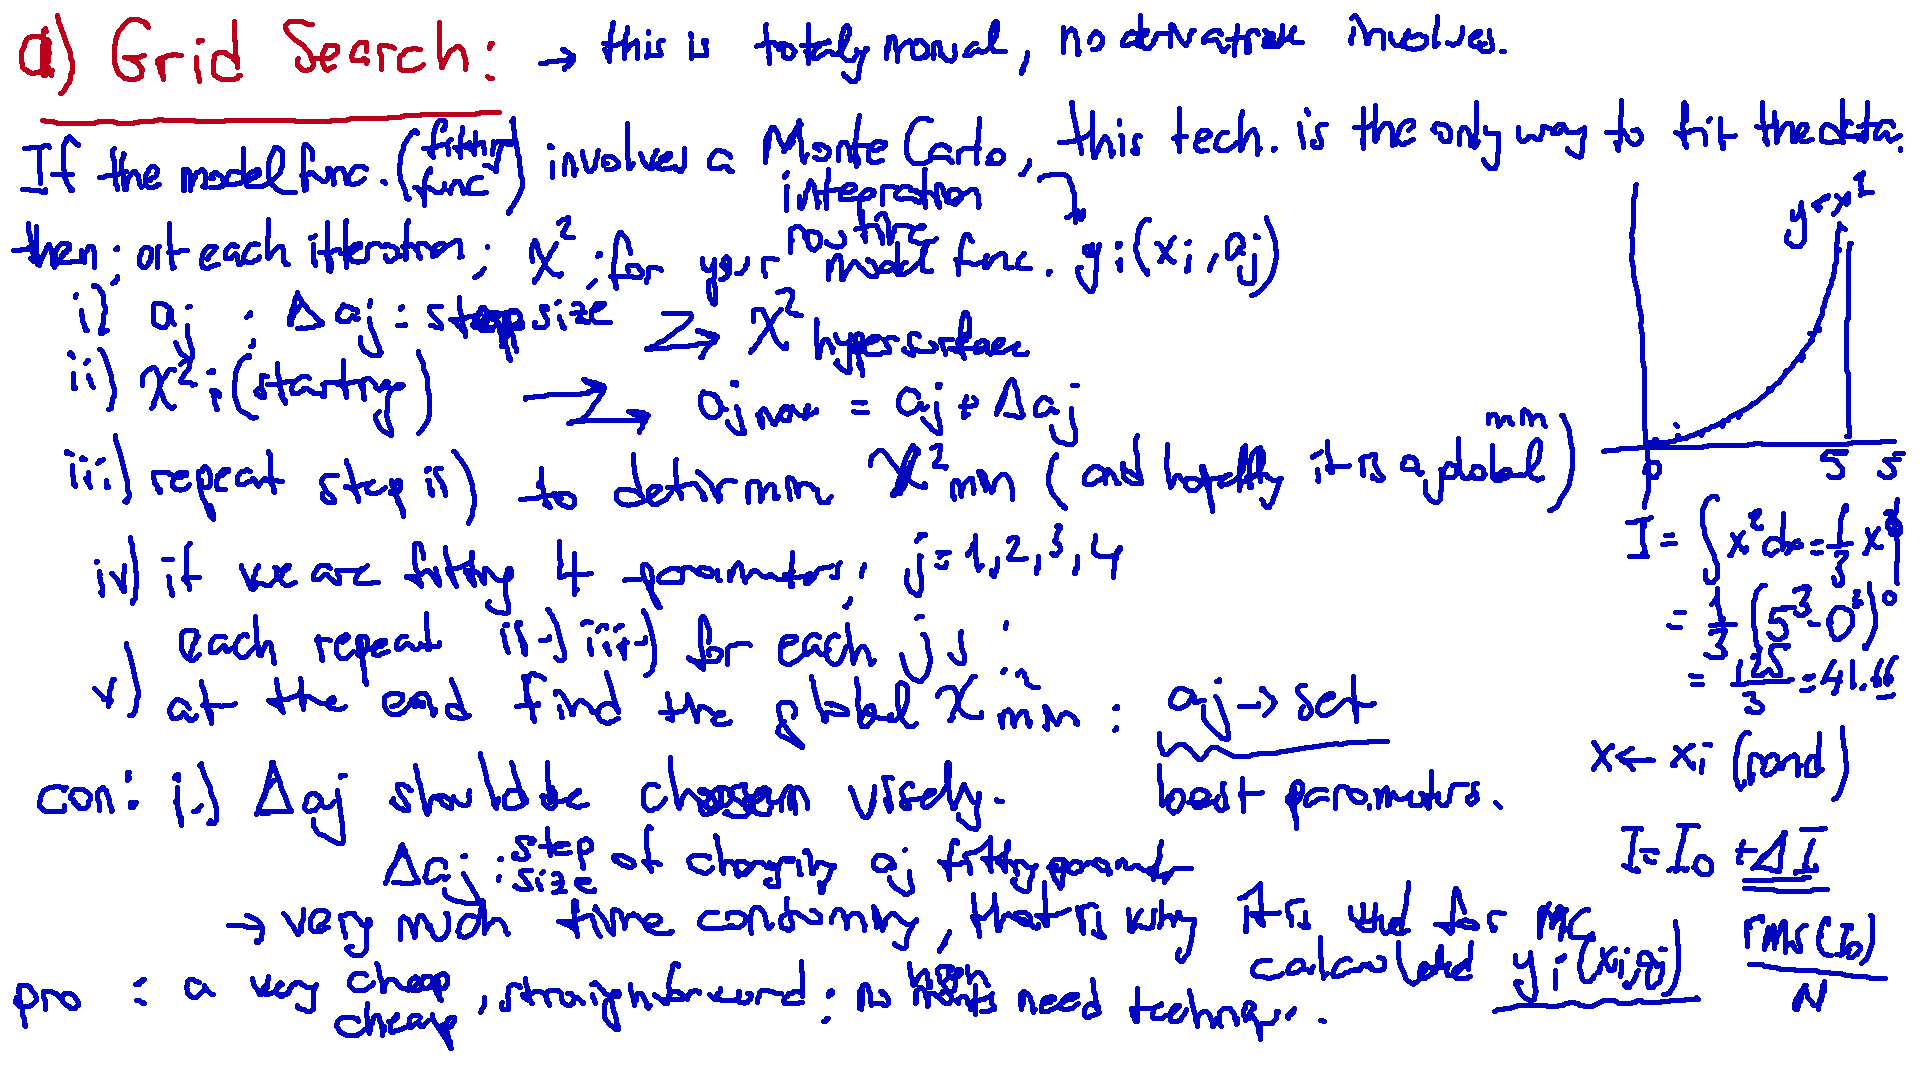 a) Grid Search: → this is totaly monual, no derivative involves.
If the model func. (fitting func) involves a Monte Carlo integration routine, this tech. is the only way to fit the data.
then; at each itteration; χ² for your model func. yi(xi, aj)
i) aj : Δaj : step size → χ² hypersurface
ii) χ²; (starting) → aj new = aj + Δaj
iii) repeat step ii) to determin χ²min (and hopefully it is a global min)
iv) if we are fitting 4 parameters, j=1,2,3,4
each repeat ii-) iii-) for each j
v) at the end find the global χ²min : aj → set
best parameters.
con: i.) Δaj should be choosen visely.
Δaj : step size of changing aj fitting parameter
→ very much time consuming, that is why it is used for MC calculated yi(xi, aj)
pro : a very cheap cheap, straighforward; no need technique.
y=x²
0 5 5
I = ∫x²dx = 1/3 x³
= 1/3 (5³-0³)
= 125/3 = 41.66
x ← xi (rand)
I = I0 + ΔI
rms(I0)/N